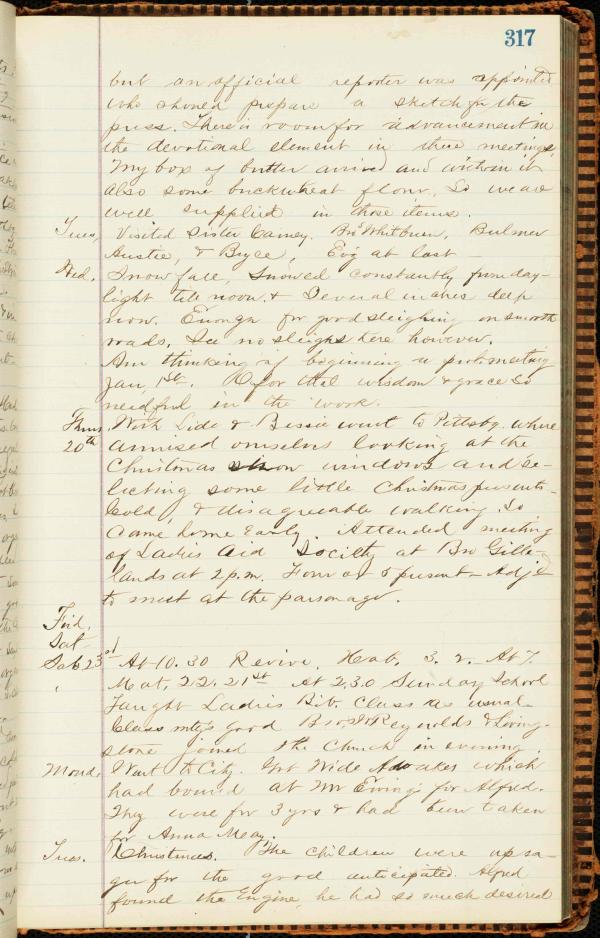 317
but an official reporter was appointed
who should prepare a sketch for the
press. There is room for advancement in
the devotional element in these meetings.
My box of butter arrived and within it
also some buckwheat flour. So we are
well supplied in those items.
Tues, Visited Sister Camey. Bro's Whitburn, Bulmer
Austie, & Bryce, Ev'g at last
Wed. Snow fall, Snowed constantly from day-
light till noon. & Several inches deep
now. Enough for good sleighing on smooth
roads. See no sleighs here however.
Am thinking of beginning a prot. meeting
Jan, 1st. O for that wisdom & grace so
needful in the work.
Thurs, With Lide & Bessie went to Pittsbg. where
20th amused ourselves looking at the
Christmas show windows and se-
lecting some little Christmas presents.
Cold, & disagreeable walking. So
came home early. Attended meeting
of Ladies Aid Society at Bro Gille-
lands at 2 p.m. Four or 5 present - Adj'd
to meet at the parsonage.
Frid.
Sat
Sab 23rd At 10.30 Revive, Hab. 3. 2. At 7.
Mat, 22. 21st At 2.30 Sunday School
Taught Ladies Bib. Class as usual
Class mtg's good Bro's Reynolds & Living-
stone joined the Church in evening.
Mond. Went to City. Got Wide Awakes which
had bound at Mr Ewing's for Alfred.
They were for 3 yrs & had been taken
for Anna Meay.
Tues. Christmas. The children were up ea-
ger for the good anticipated. Alfred
found the Engine, he had so much desired